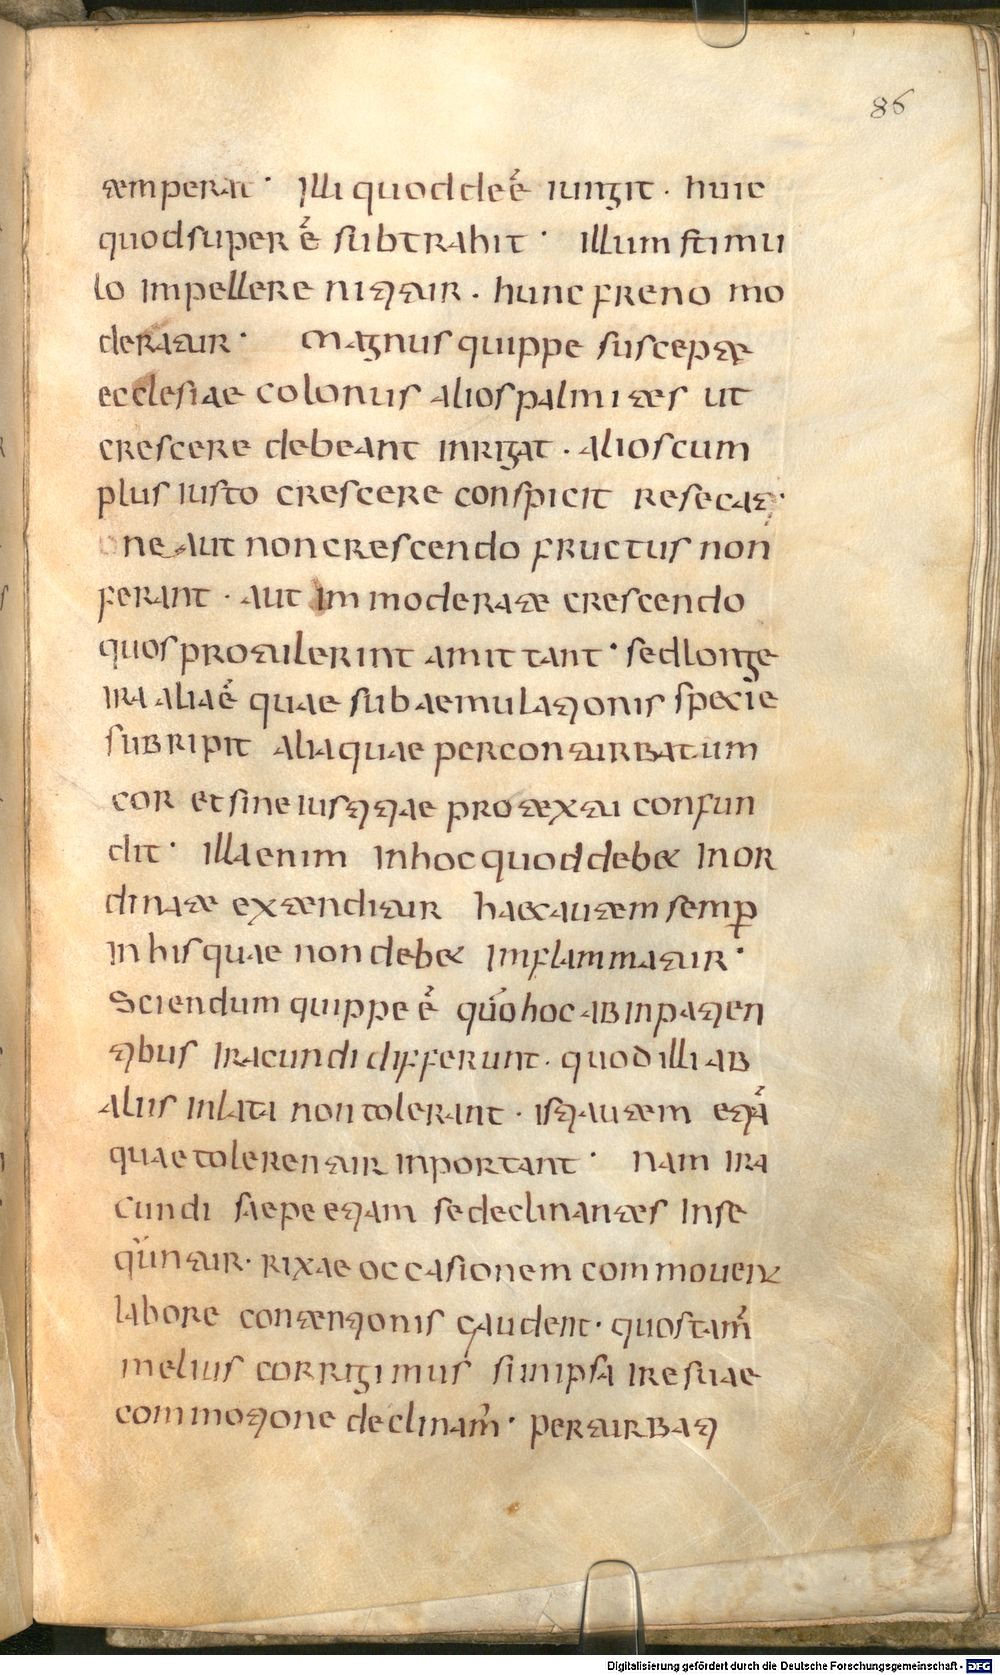 86
temperat· Illi quod deē iungit. huic
quod super ē subtrahit· Illum stimu
lo impellere nititur. hunc freno mo
deratur· Magnus quippe susceptae
ecclesiae colonus alios palmites ut
crescere debeant inrigat. alios cum
plus iusto crescere conspicit resecat·
ne aut non crescendo fructus non
ferant. aut immoderate crescendo
quos protulerint amittant· sed longe
ira alia ē quae sub aemulationis specie
subripit alia quae perconturbatum
cor et sine iustitiae protextu confun
dit· illa enim in hoc quod debet inor
dinate extenditur haec autem semp
in his quae non debet inflammatur·
Sciendum quippe ē quo hoc ab inpatien
tibus iracundi differunt. quod illi ab
aliis inlata non tolerant. isti autem etiā
quae tolerentur inportant· nam ira
cundi saepe etiam se declinantes inse
quntur. rixae occasionem commouent
labore contentionis gaudent. quos tam
melius corrigimus si in ipsa ire suae
commotione declinam· perturbati
Digitalisierung gefördert durch die Deutsche Forschungsgemeinschaft - DFG